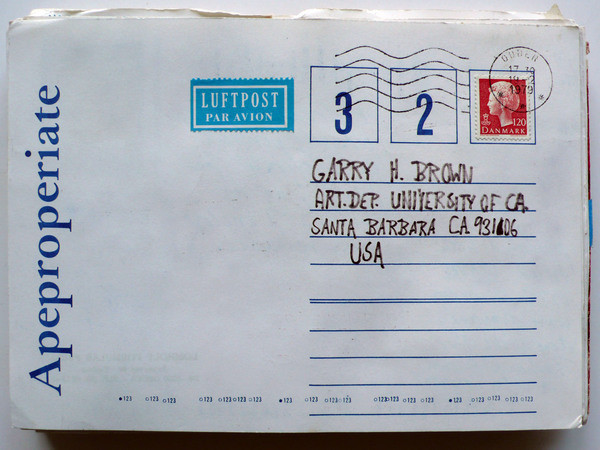 Apeproperiate
LUFTPOST
PAR AVION
3 2
ODDER
1979
120
DANMARK
GARRY H. BROWN
ART. DEP. UNIVERSITY OF CA.
SANTA BARBARA CA. 93106
USA
•123 ○123 ○123 ○123○123○123 •123 ○123 ○123○123 ○123○123○123 •123 ○123 ○123